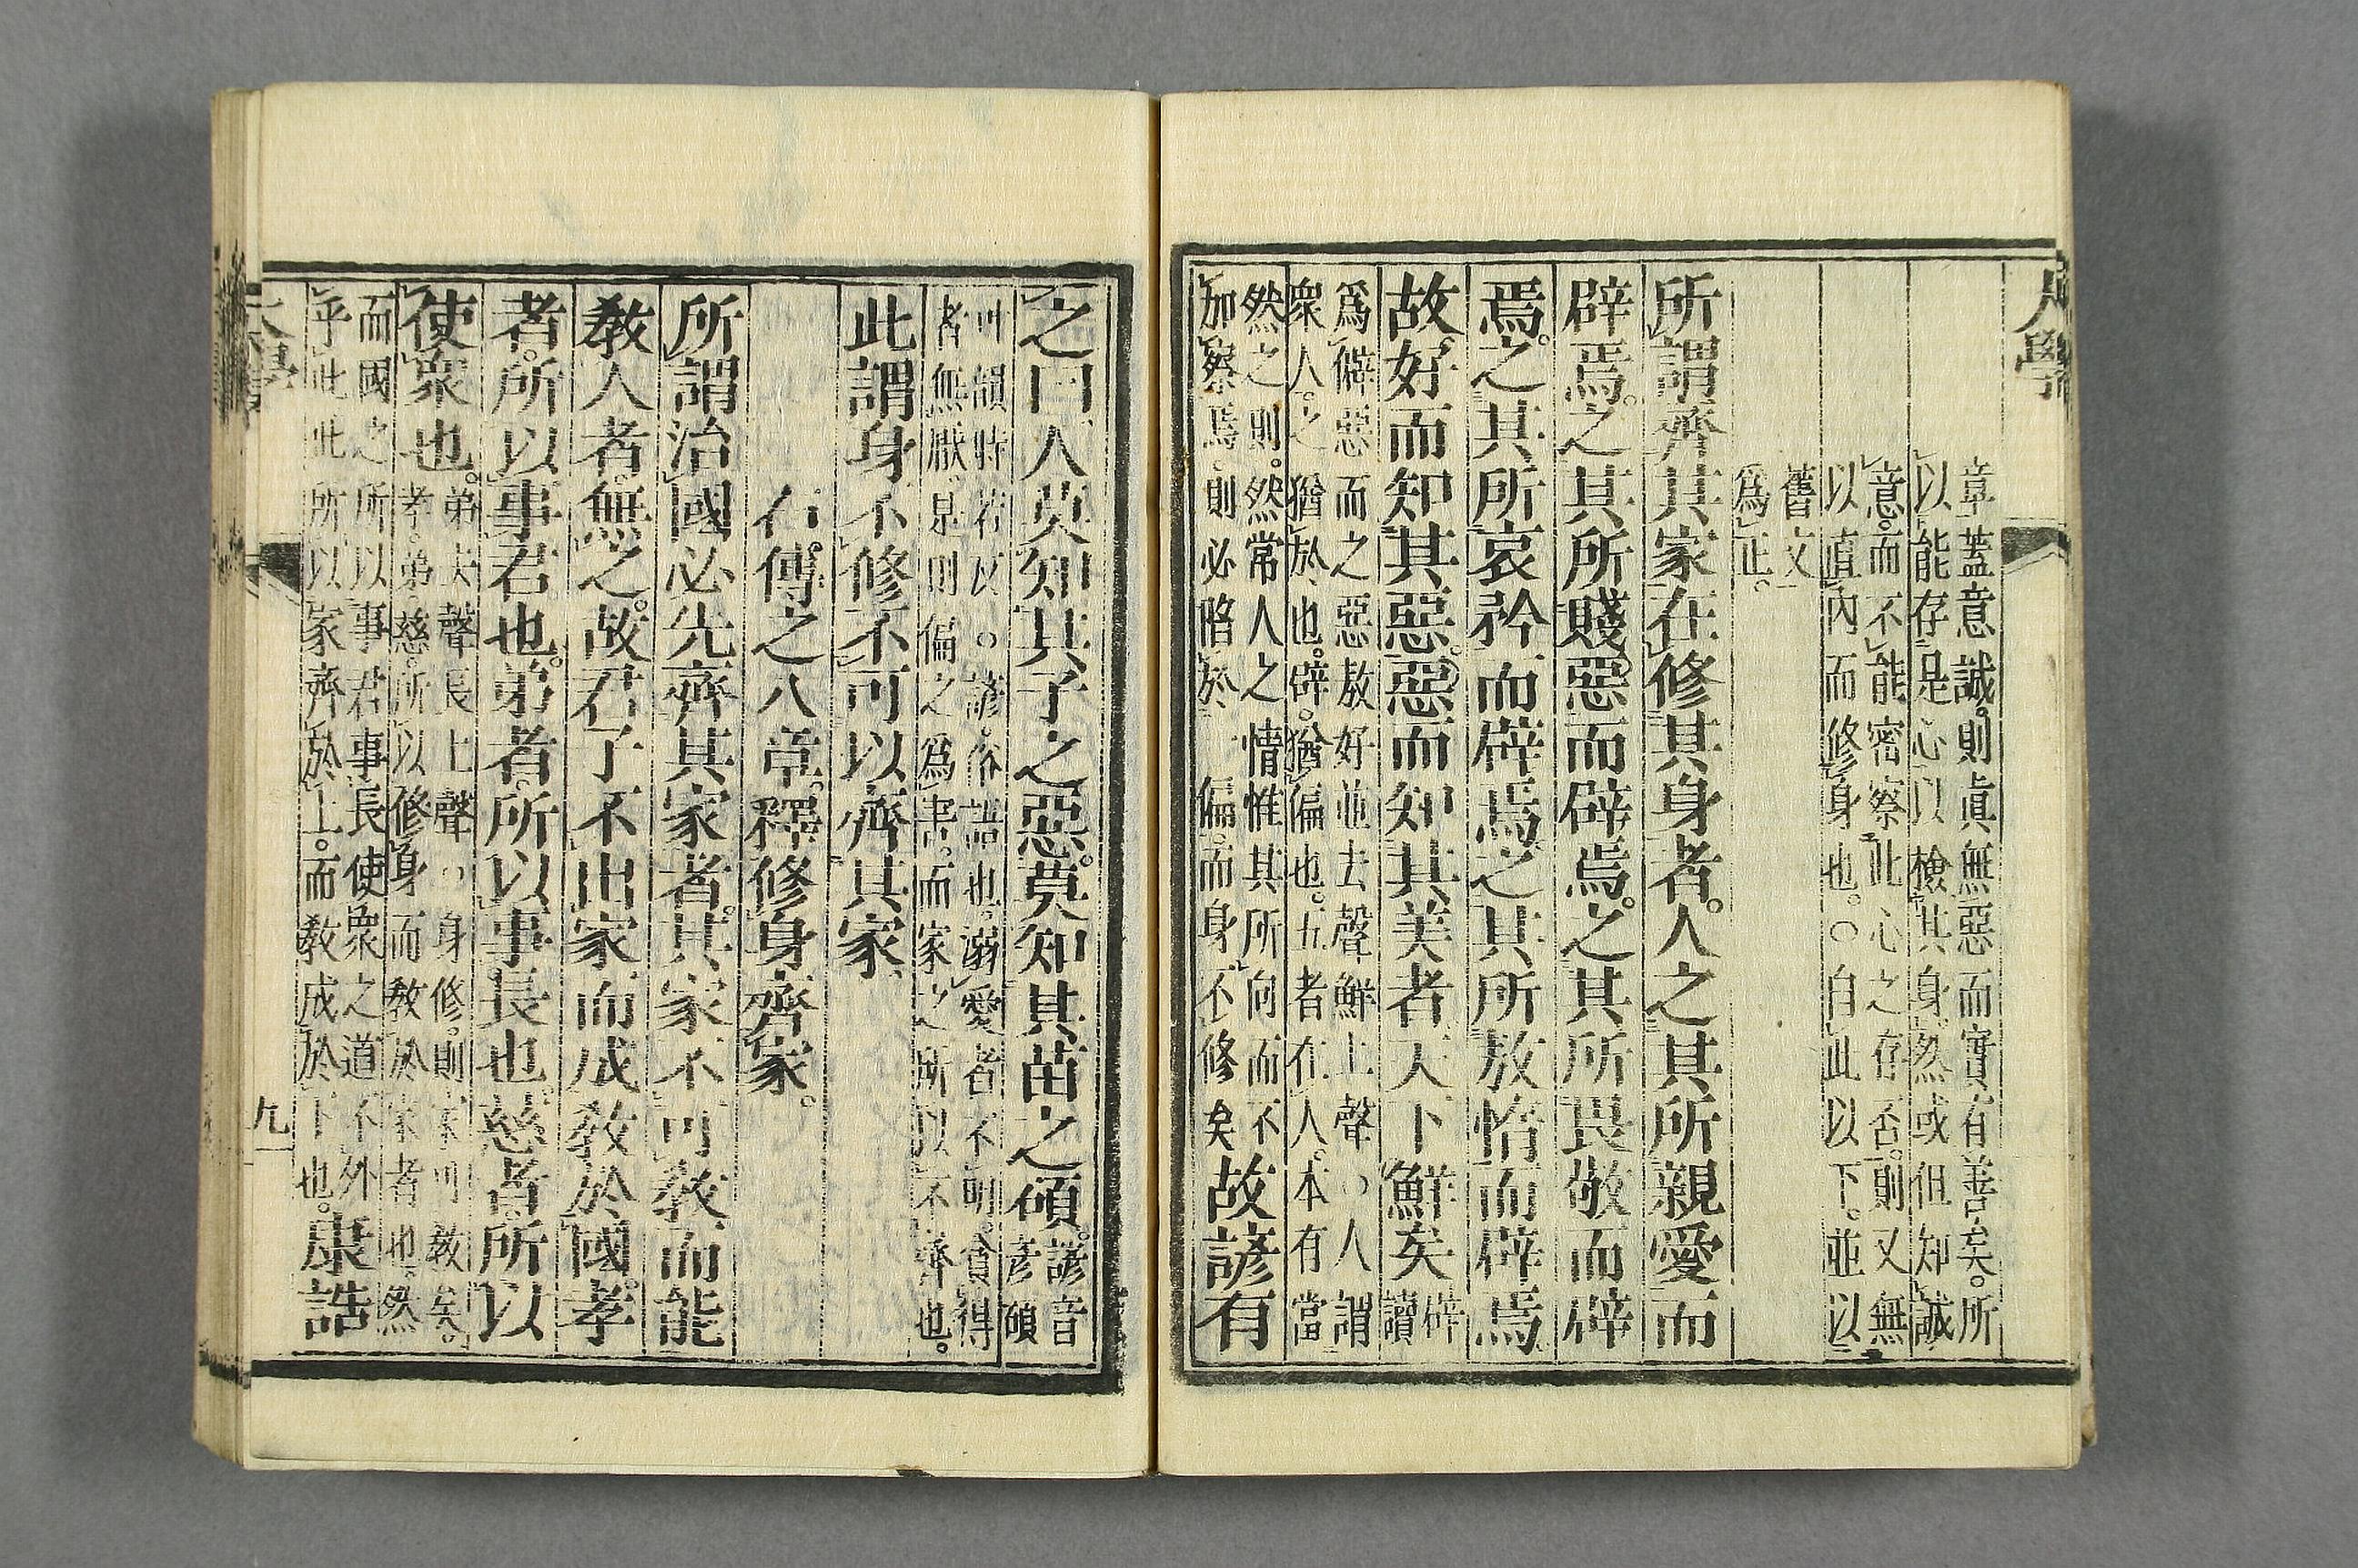 大學
章蓋意誠。則眞無惡而實有善矣。所
以能存是心以檢其身。然或但知誠
意。而不能密察此心之存否。則又無
以直內而修身也。○自此以下。並以
舊文
爲正。
所謂齊其家在修其身者。人之其所親愛而
辟焉。之其所賤惡而辟焉。之其所畏敬而辟
焉。之其所哀矜而辟焉。之其所敖惰而辟焉。
故好而知其惡。惡而知其美者天下鮮矣
辟
讀
爲僻惡而之惡敖好並去聲鮮上聲○人謂
衆人。之猶於也。辟。猶偏也。五者在人。本有當
然之則。然常人之情惟其所向而不
加察焉。則必陷於一偏。而身不修矣
故諺有
之曰人莫知其子之惡。莫知其苗之碩。
諺音
彦碩
叶韻時若反。○諺。俗語也。溺愛者不明。貪得
者無厭。是則偏之爲害。而家之所以不齊也。
此謂身不修不可以齊其家
右傳之八章。釋修身齊家。
所謂治國必先齊其家者。其家不可敎而能
敎人者。無之。故君子不出家而成敎於國。孝
者。所以事君也。弟者。所以事長也。慈者。所以
使衆也。
弟去聲長上聲○身修。則家可敎矣。
孝。弟。慈。所以修身而敎於家者也。然
而國之所以事君事長使衆之道不外
乎此此所以家齊於上。而敎成於下也。
康誥
大學
九